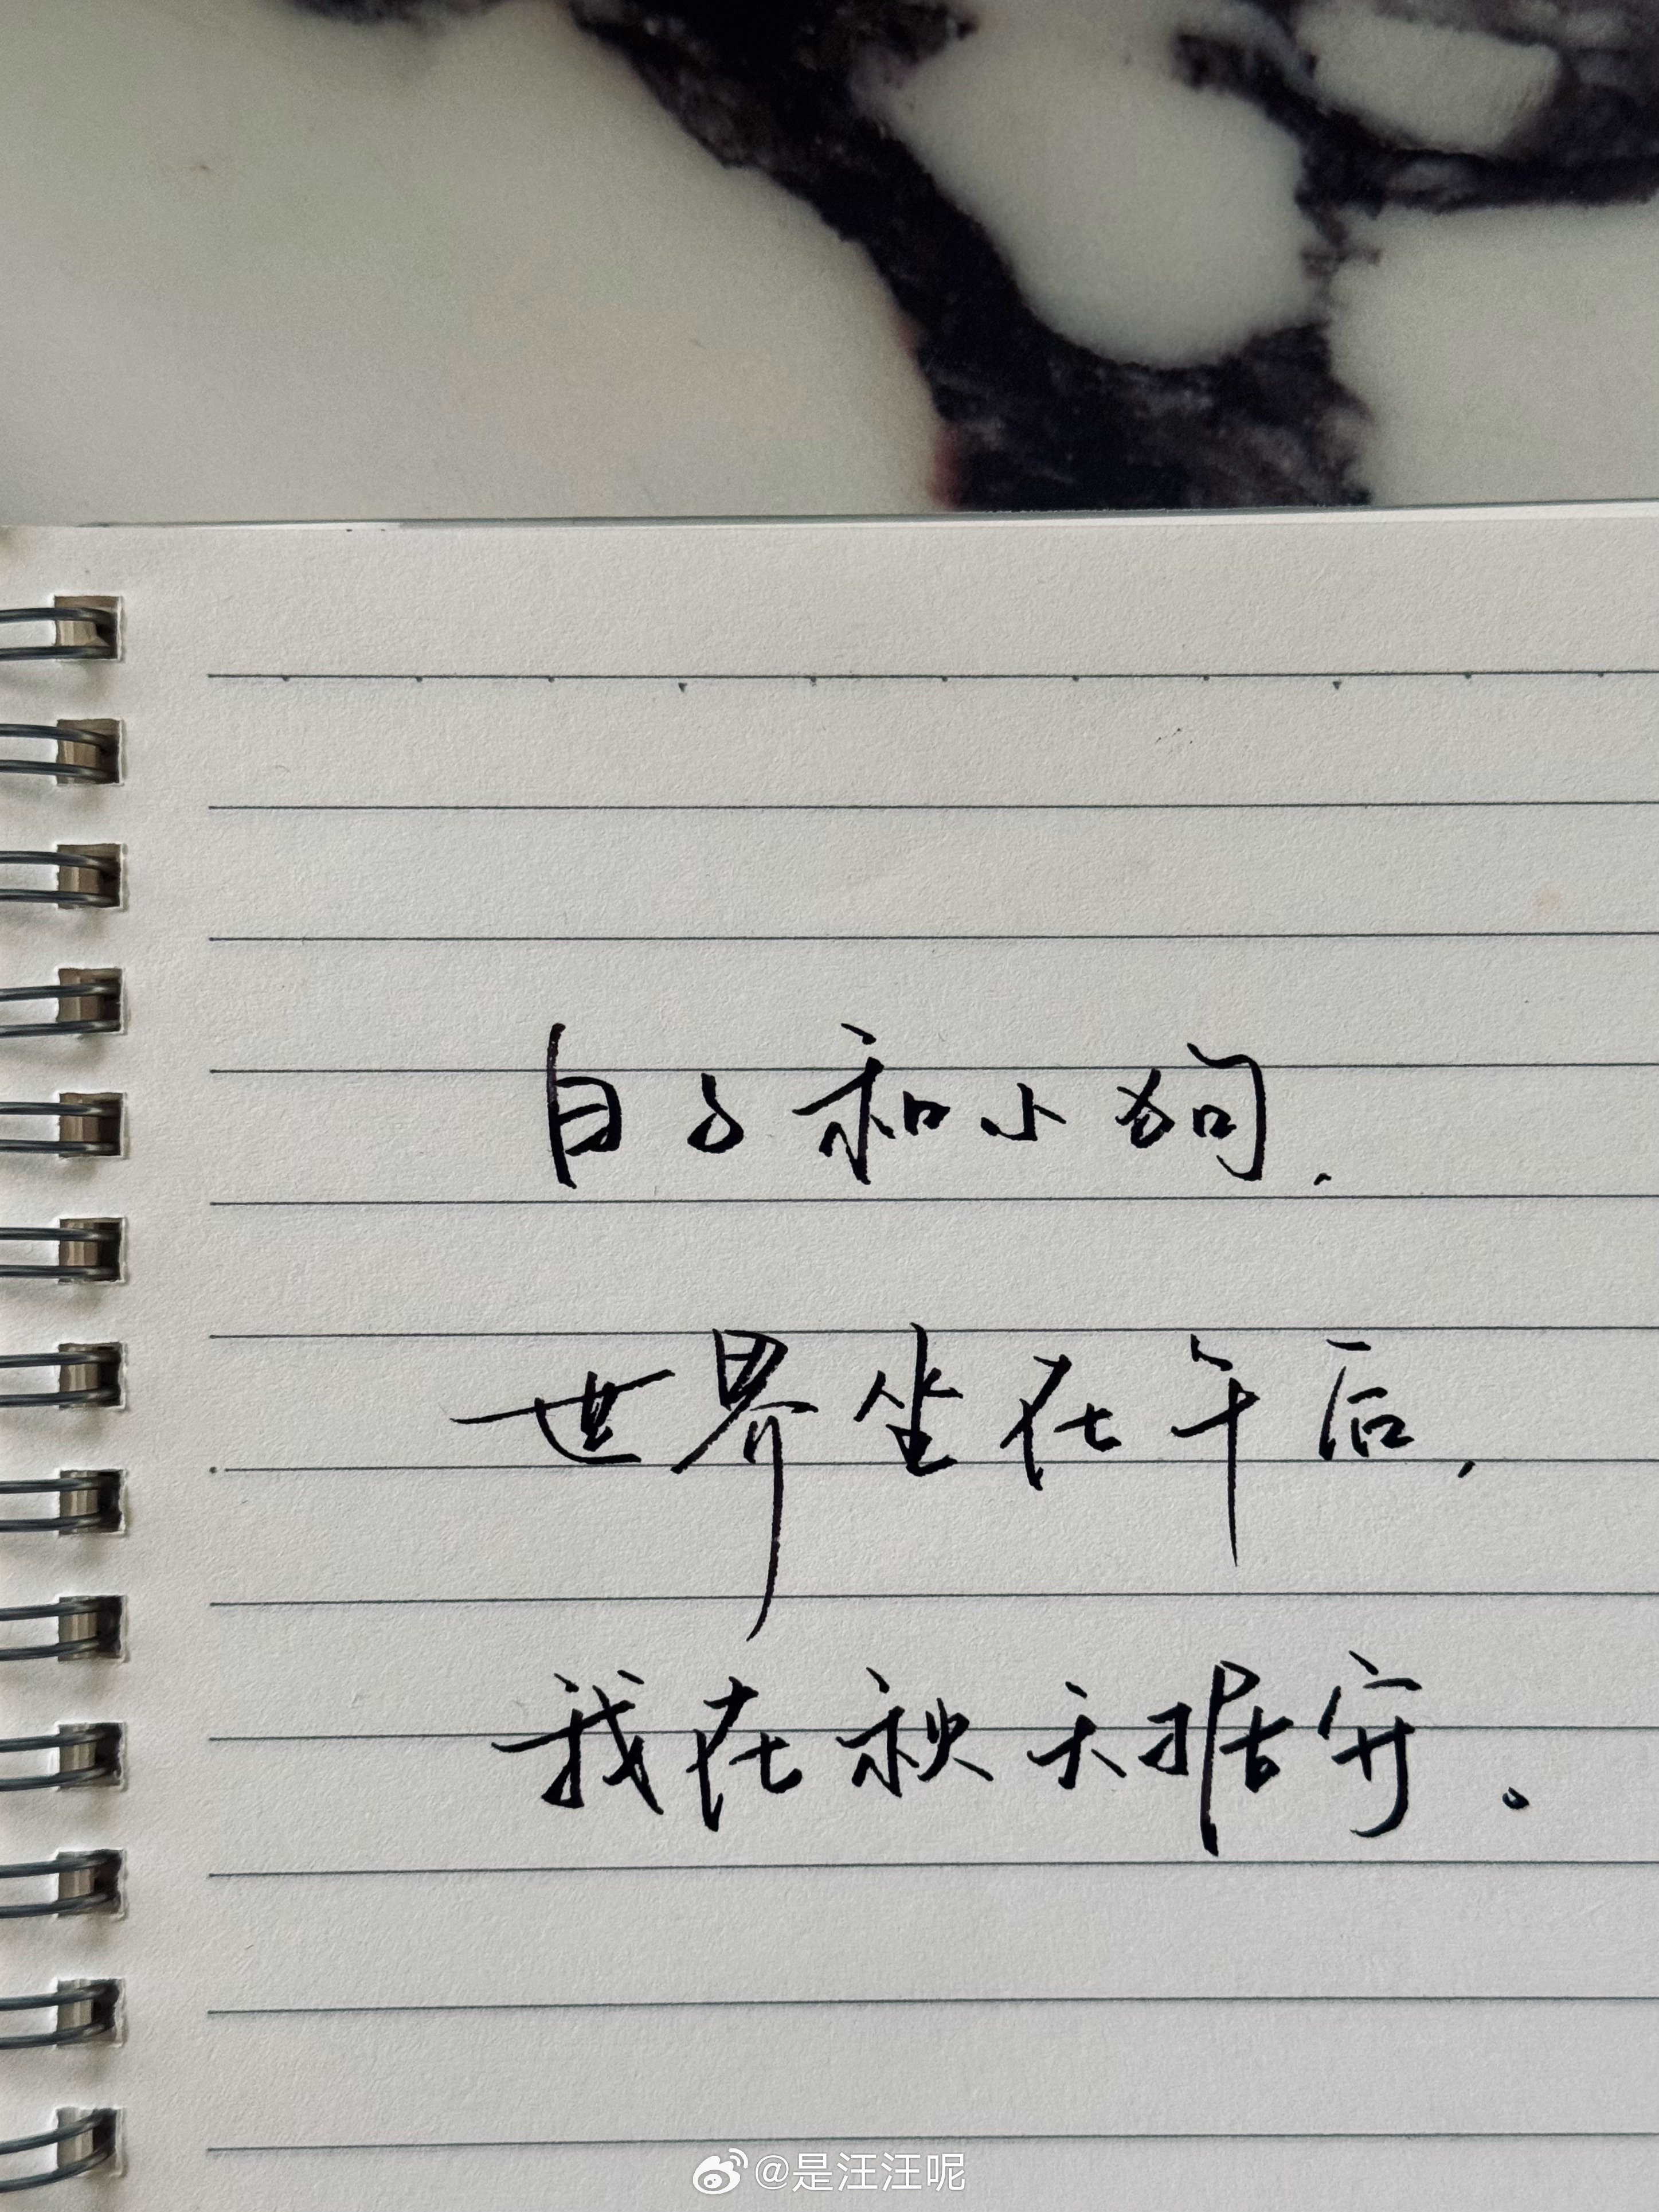 白和小狗，
世界坐在午后，
我在秋天据。
@是汪汪呢